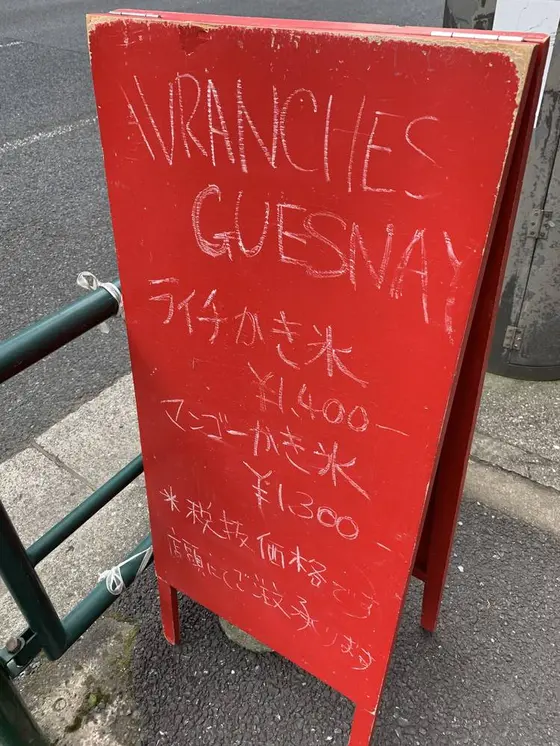 AVRANCHES
GUESNAY
ライチかき氷
¥1,400-
マンゴーかき氷
¥1300-
*税抜価格です
店頭にて